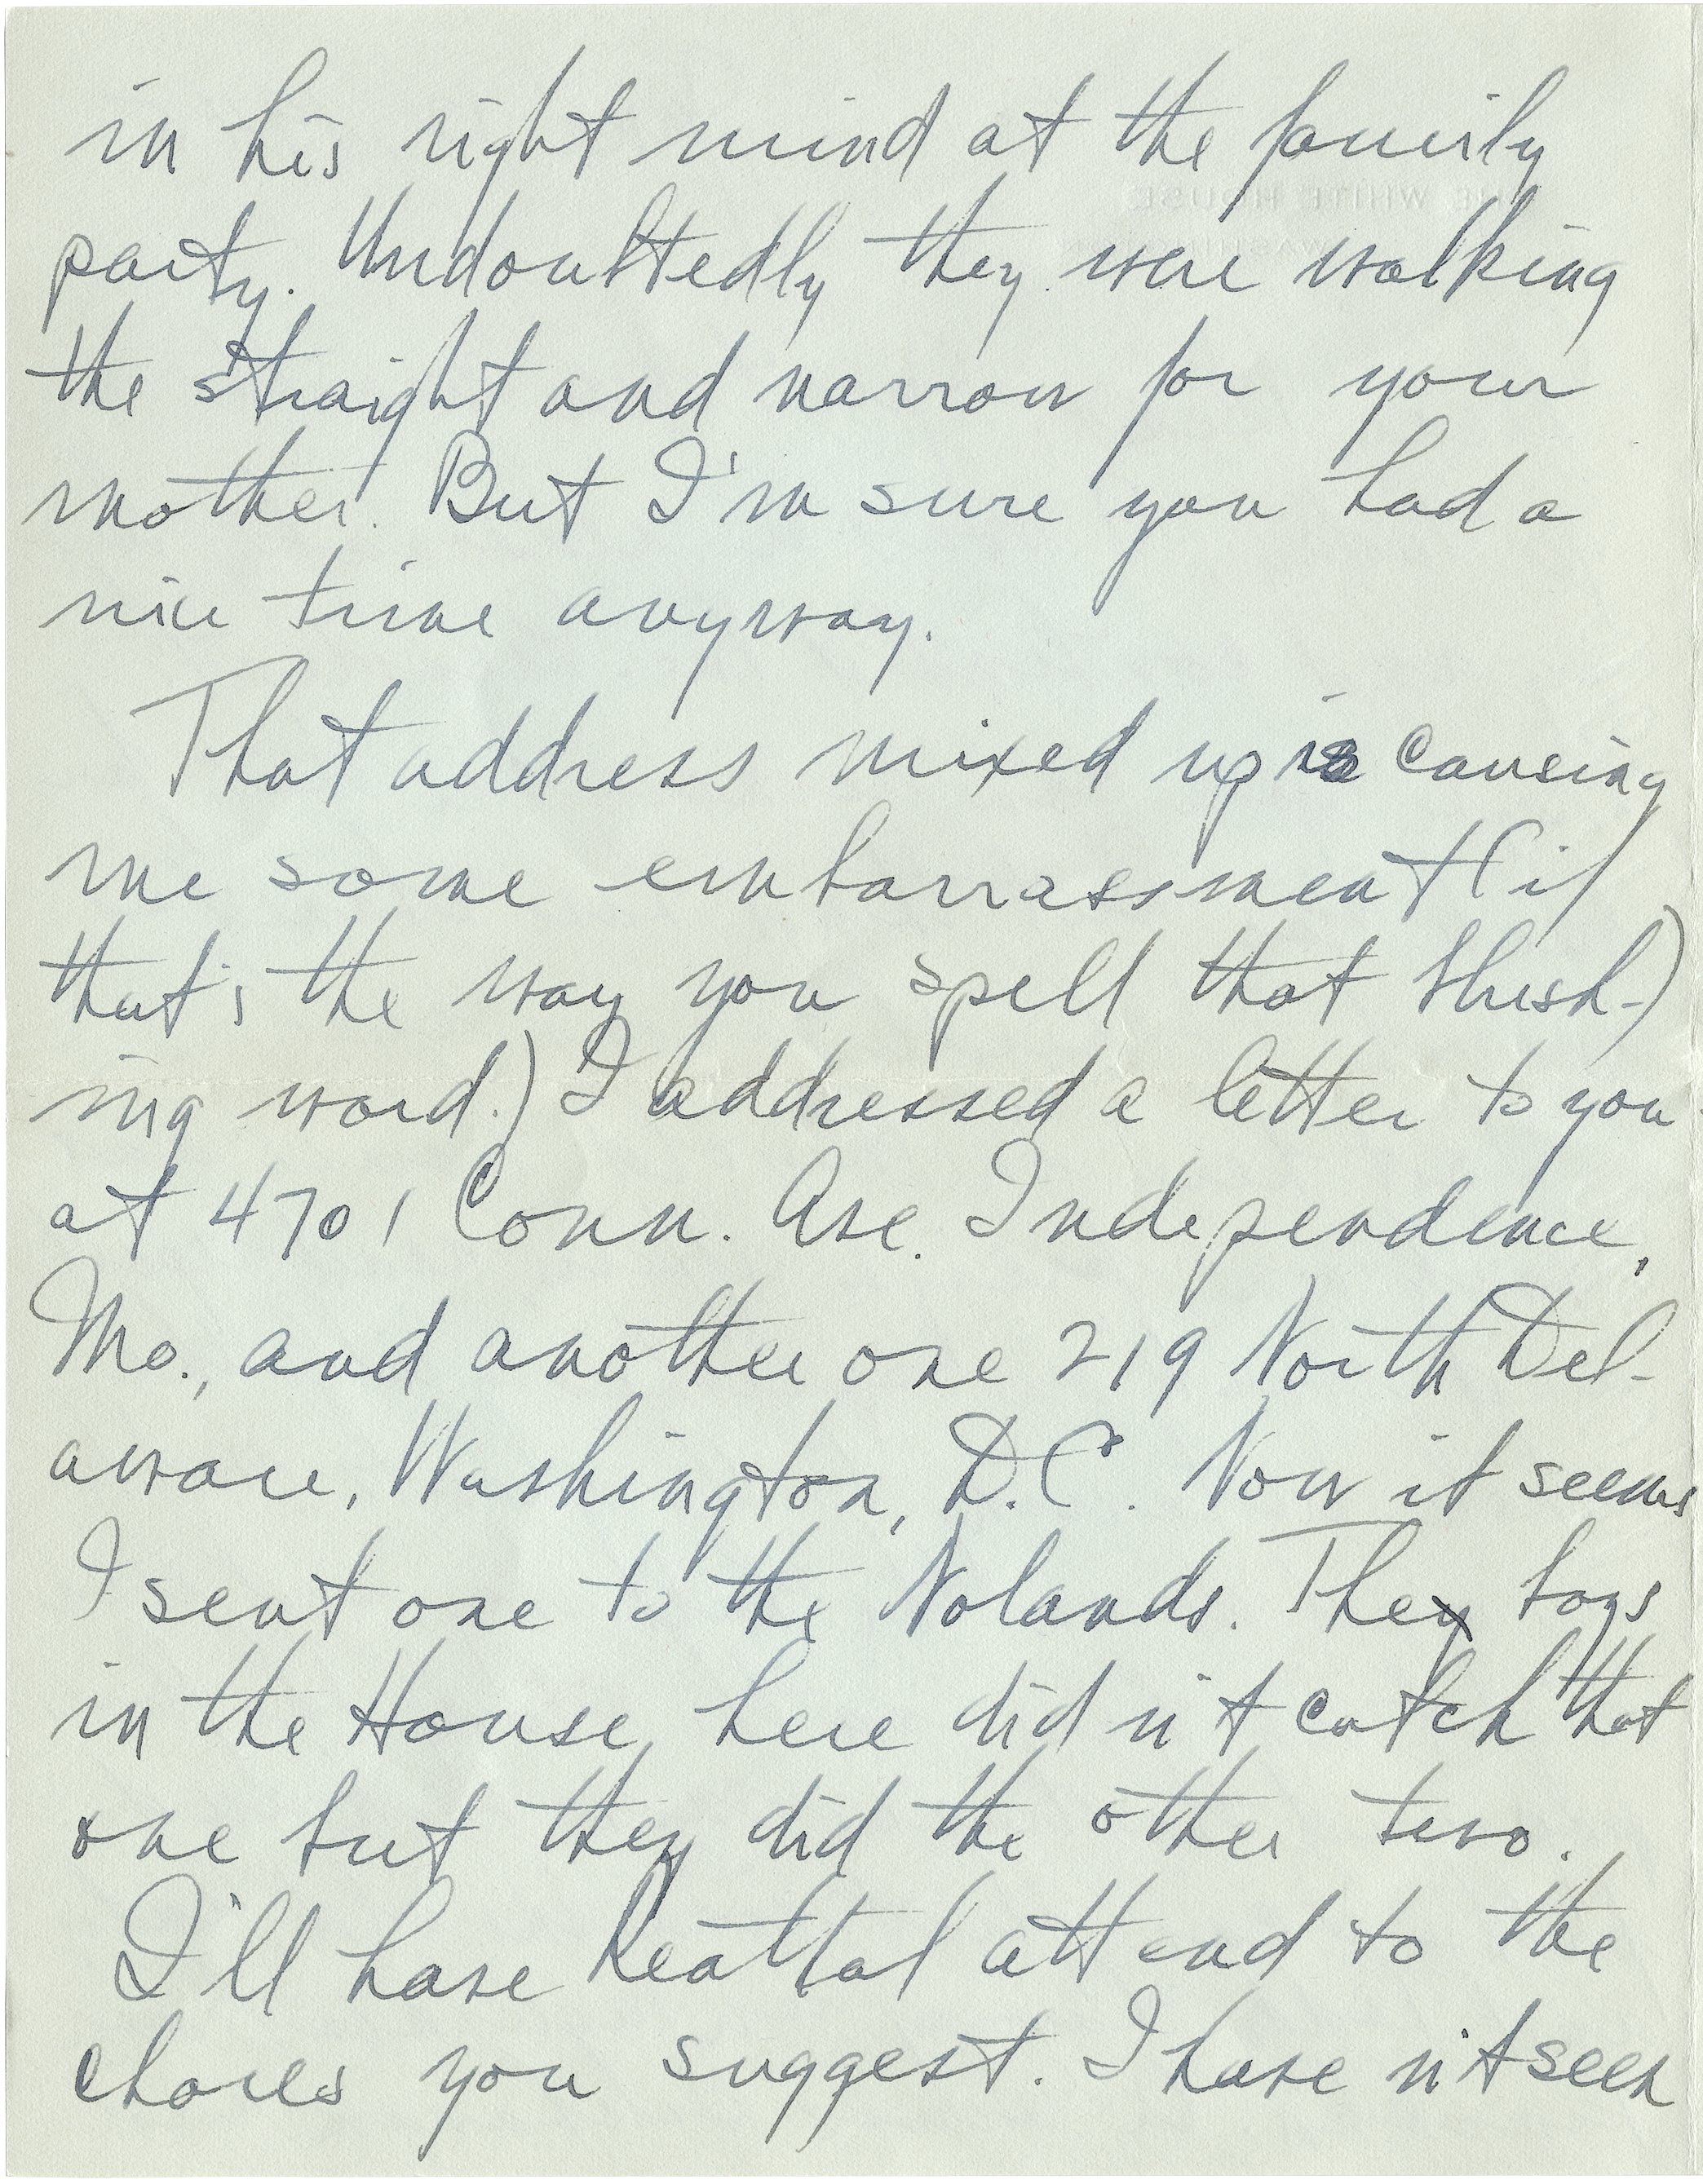 in his right mind at the family
THE WHITE HOUSE
WASHINGTON
party. Undoubtedly they were walking
the straight and narrow for your
mother. But I'm sure you had a
nice time anyway.
That address mixed up is causing
me some embarrassment (if
that's the way you spell that blush-)
ing word.) I addressed a letter to you
at 4701 Conn. Ave. Independence,
Mo., and another one 219 North Del-
aware, Washington, D.C. Now it seems
I sent one to the Nolands. They boys
in the House here did n't catch that
one but they did the other two.
I'll have Reathal attend to the
chores you suggest. I have n't seen